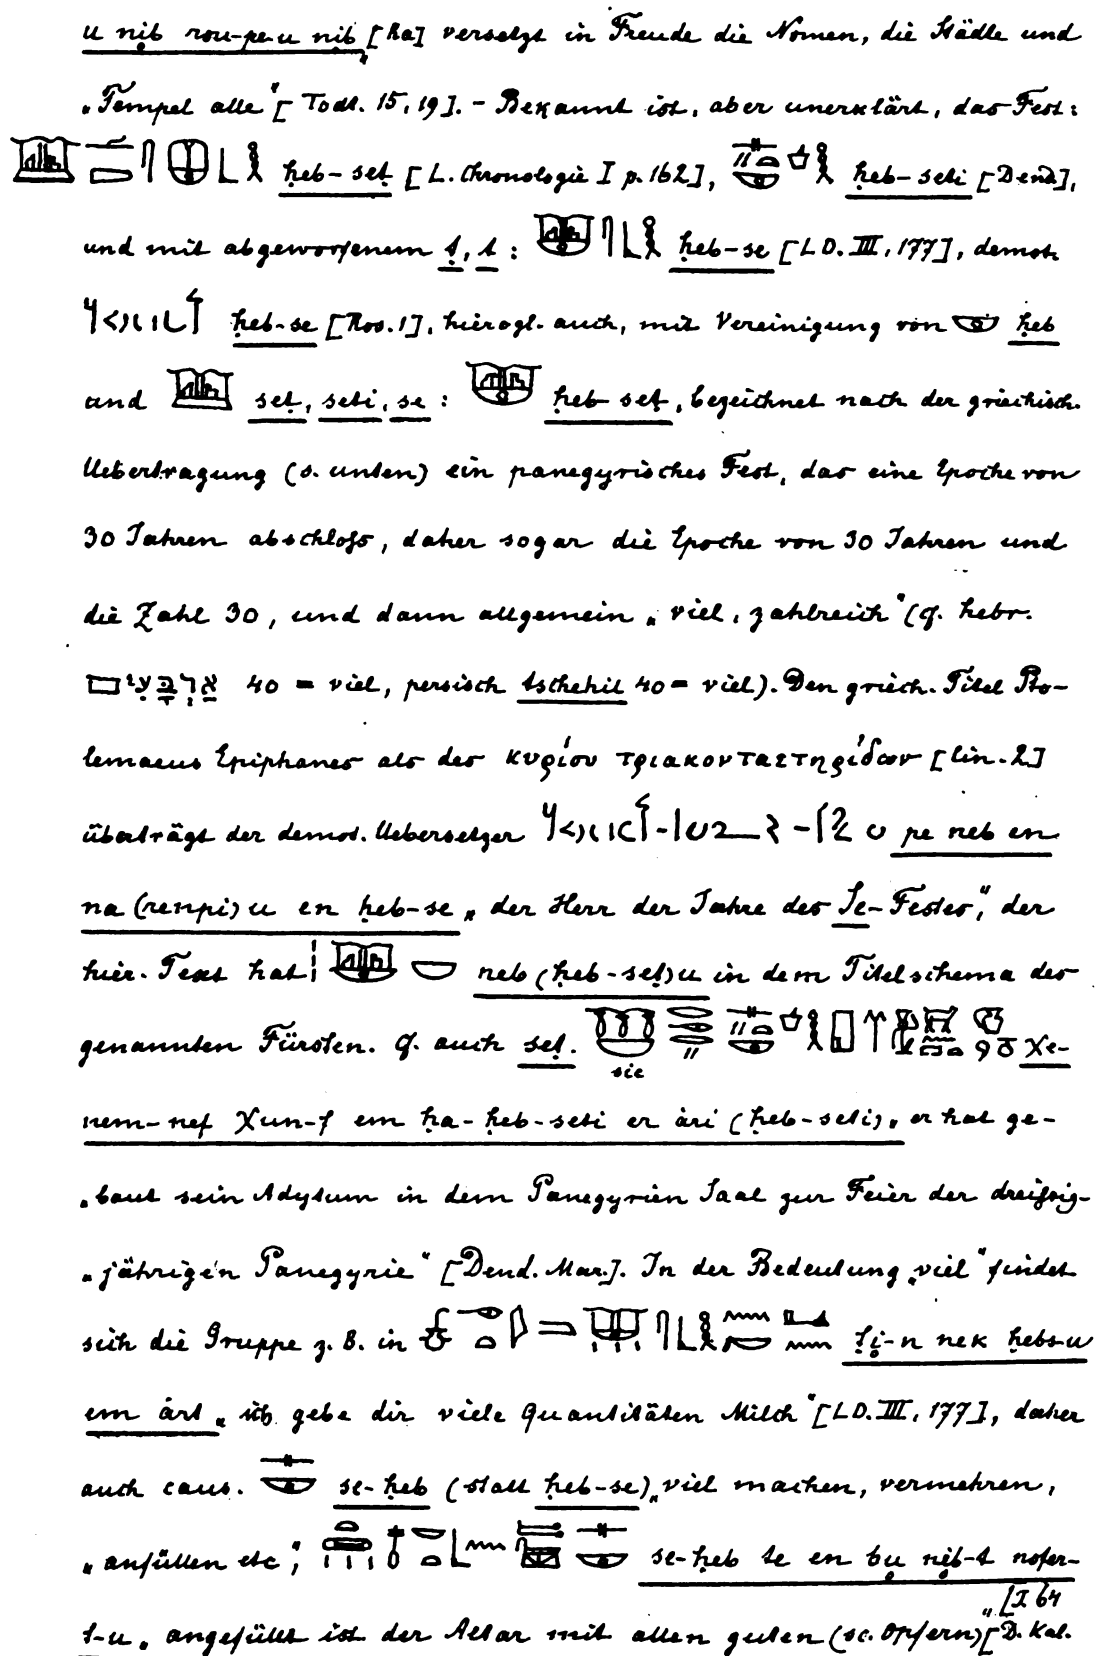 u nib rou-pe-u nib [Ra] versetzt in Freude die Nomen, die Städte und
„Tempel alle" [Todt. 15, 19]. – Bekannt ist, aber unerklärt, das Fest:
ḥeb-seṭ [L. Chronologie I p. 162], ḥeb-seti [Dend],
und mit abgeworfenem ṭ, t : ḥeb-se [LD. III, 177], demot.
ḥeb-se [Ros. 1], hierogl. auch, mit Vereinigung von ḥeb
und seṭ, seti, se : ḥeb seṭ, bezeichnet nach der griechisch.
Uebertragung (s. unten) ein panegyrisches Fest, das eine Epoche von
30 Jahren abschloſs, daher sogar die Epoche von 30 Jahren und
die Zahl 30, und dann allgemein „viel, zahlreich" (cf. hebr.
אַרְבָּעִים 40 = viel, persisch tschehil 40 = viel). Den griech. Titel Pto-
lemaeus Epiphanes als des κυρίου τριακονταετηρίδων [lin. 2]
überträgt der demot. Uebersetzer pe neb en
na (renpi) u en ḥeb-se „der Herr der Jahre des Se-Festes", der
hier. Text hat neb (ḥeb-seṭ)u in dem Titelschema des
genannten Fürsten. Cf. auch seṭ. Xe-
sic
nem-nef Xun-f em ḥa-ḥeb-seti er àri (ḥeb-seti) „er hat ge-
„baut sein Adytum in dem Panegyrien Saal zur Feier der dreiſsig-
„jährigen Panegyrie" [Dend. Mar.]. In der Bedeutung „viel" findet
sich die Gruppe z. B. in ṭi-n nek ḥebs-u
em àrt „ich gebe dir viele Quantitäten Milch" [LD. III, 177], daher
auch caus. se-ḥeb (statt ḥeb-se) „viel machen, vermehren,
„anfüllen etc"; se-ḥeb te en bu nib-t nofer-
t-u „angefüllt ist der Altar mit allen guten (sc. Opfern)" [D. Kal.
[I 64